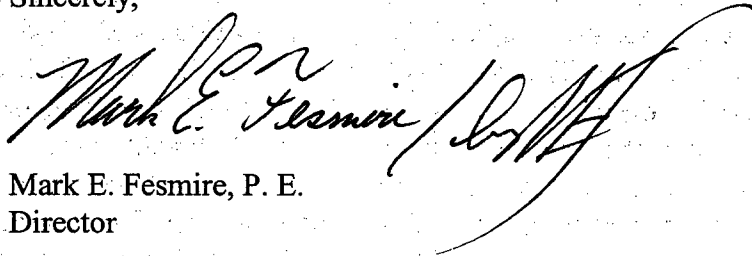 Sincerely,
Mark E. Fesmire / by
Mark E. Fesmire, P. E.
Director